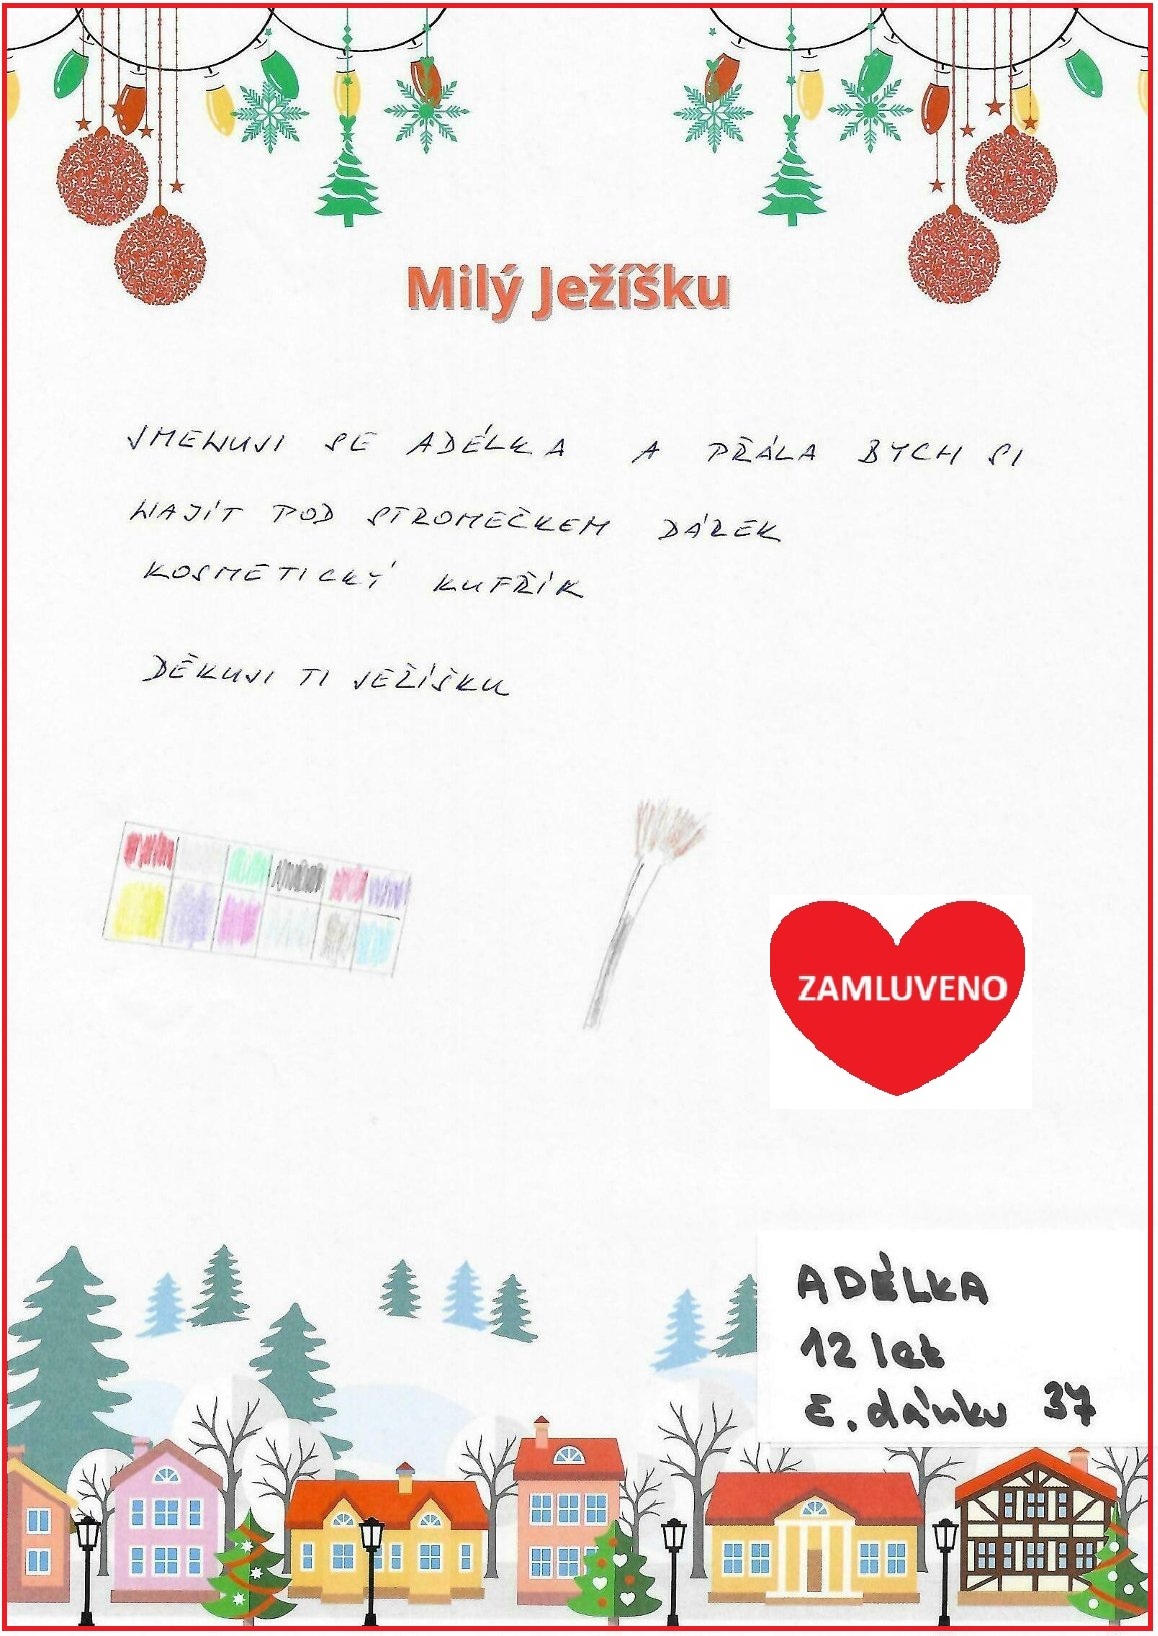 Milý Ježíšku
JMENUJI SE ADÉLKA A PŘÁLA BYCH SI
NAJÍT POD STROMEČKEM DÁREK
KOSMETICKÝ KUFŘÍK
DĚKUJI TI JEŽÍŠKU
ZAMLUVENO
ADÉLKA
12 let
č. dárku 37